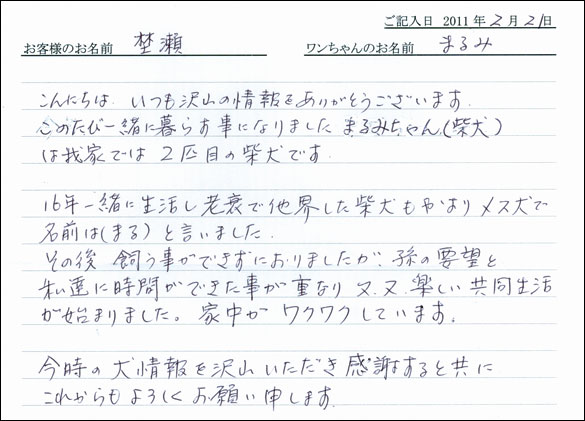 ご記入日 2011年2月21日
お客様のお名前 埜瀬 ワンちゃんのお名前 まるみ
こんにちは、いつも沢山の情報をありがとうございます。
このたび一緒に暮らす事になりました まるみちゃん(柴犬)
は我家では 2匹目の柴犬です.
16年一緒に生活し老衰で他界した柴犬もやはりメス犬で
名前は(まる)と言いました.
その後 飼う事ができずにおりましたが、孫の要望と
私達に時間ができた事が重なり 又、又、楽しい共同生活
が始まりました。家中がワクワクしています.
今時の犬情報を沢山いただき感謝すると共に
これからもよろしくお願い申します.